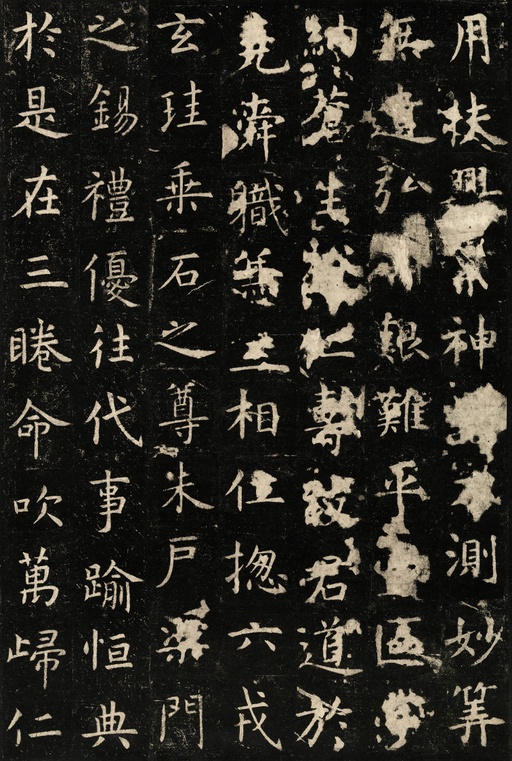 用扶興神不測妙筭
無遺弘艱難平壹區宇
納蒼生於仁壽致君道於
堯舜職兼三相位揔六戎
玄珪乗石之尊朱戸渠門
之錫禮優往代事踰恒典
於是在三睠命吹萬歸仁